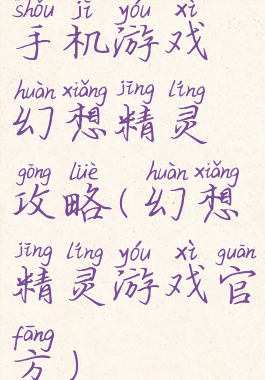 shǒu jī yóu xì
手机游戏
huàn xiǎng jīng líng
幻想精灵
gōng lüè huàn xiǎng
攻略(幻想
jīng líng yóu xì guān
精灵游戏官
fāng
方)